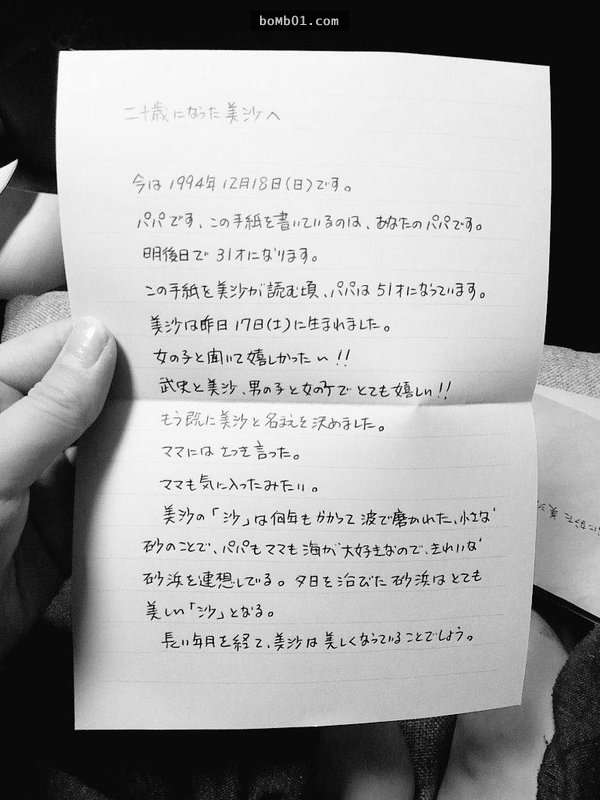 boMb01.com
二十歳になった美沙へ
今は1994年12月18日(日)です。
パパです、この手紙を書いているのは、あなたのパパです。
明後日で31才になります。
この手紙を美沙が読む頃、パパは51才になっています。
美沙は昨日17日(土)に生まれました。
女の子と聞いて嬉しかったい!!
武史と美沙、男の子と女の子でとても嬉しい!!
もう既に美沙と名まえを決めました。
ママにはさっき言った。
ママも気に入ったみたい。
美沙の「沙」は何年もかかって波で磨かれた、小さな
砂のことで、パパもママも海が大好きなので、きれいな
砂浜を連想してる。夕日を浴びた砂浜はとても
美しい「沙」となる。
長い年月を経て、美沙は美しくなっていることでしょう。